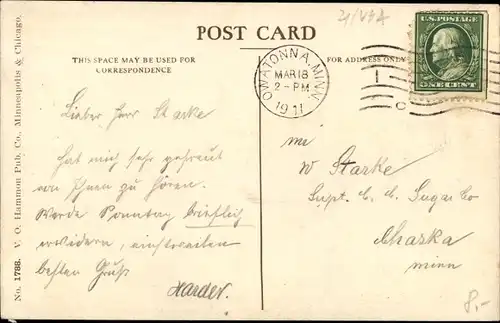 21/VSA
POST CARD
THIS SPACE MAY BE USED FOR
CORRESPONDENCE
FOR ADDRESS ONLY
OWATONNA, MINN.
MAR 18
2 - PM
1911
U.S. POSTAGE
ONE CENT
1
C
Lieber Herr Starke
hat mich sehr gefreut
von Ihnen zu hören.
Werde Sonntag brieflich
erwidern, einstweilen
besten Gruß
Harder.
W Starke
Supt. C. C. Sugar Co
Chaska
Minn
8,-
No. 1788. V. O. Hammon Pub. Co., Minneapolis & Chicago.